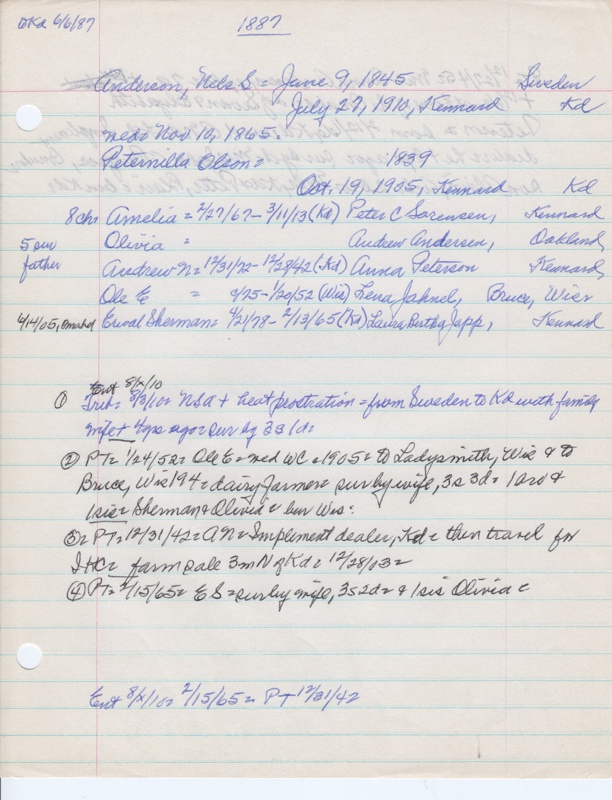 6/6/87
1887
Anderson, Nels S = June 9, 1845 Sweden
July 27, 1910, Kennard Kd
med = Nov 10, 1865 =
Peternilla Olson = 1839
Oct. 19, 1905, Kennard Kd
8 ch = Amelia = 2/27/67 - 3/11/13 (Kd) Peter C Sorensen, Kennard
5 sur Olivia = Andrew Andersen, Oakland,
father Andrew N = 12/31/72 - 12/28/42 (Kd) Anna Peterson Kennard,
Ole E = 2/75 - 1/20/52 (Wis) Lena Jahnel, Bruce, Wis =
4/14/05, Omaha Sherman = 4/21/78 - 2/13/65 (Kd) Laura Bertha Japp, Kennard
① Trib = 8/3/10 = NSA + heat prostration = from Sweden to Kd with family
wife + 4 yrs ago = sur by 3s 1d =
② PT = 1/24/52 = Ole E = med WC = 1905 = to Ladysmith, Wis & to
Bruce, Wis 194 = dairy farmer = sur by wife, 3s 3d = 1 bro &
1 sis = Sherman & Olivia = bur Wis =
③ = PT = 12/31/42 = AN = Implement dealer, Kd = then travel for
IHC = farm sale 3 m N of Kd = 12/28/03 =
④ PT = 2/15/65 = ES = sur by wife, 3s 2d = & 1 sis Olivia =
Ent 8/4/10 = 2/15/65 = PT 12/31/42